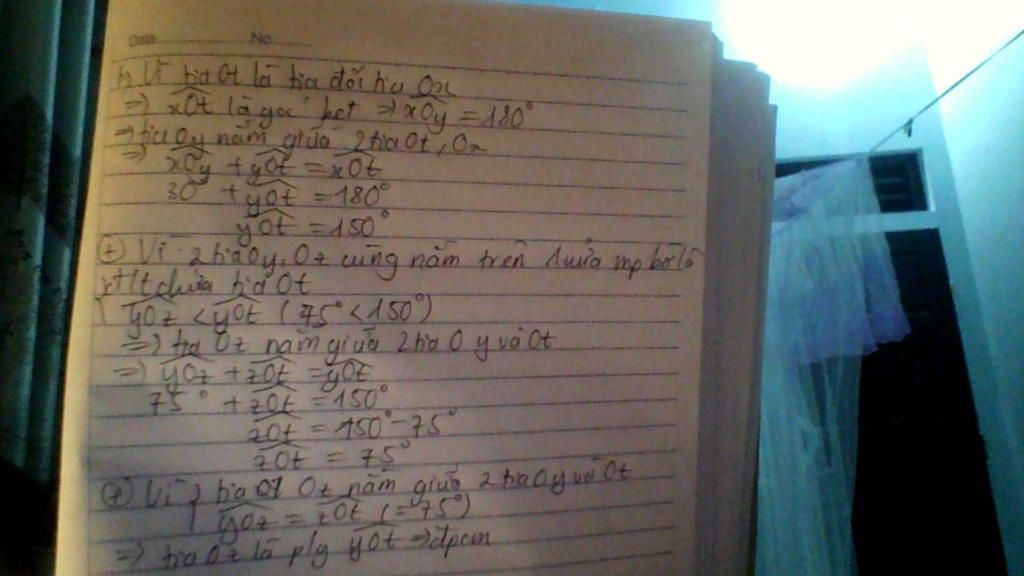 Date No
b) Vì tia Ot là tia đối tia Ox
=> xOt là góc bẹt => xOy = 180°
=> tia Oy nằm giữa 2 tia Ot, Ox
=> xOy + yOt = xOt
30° + yOt = 180°
yOt = 150°
(+) Vì 2 tia Oy, Oz cùng nằm trên 1 nửa mp bờ là
đt chứa tia Ot
yOz < yOt (75° < 150°)
=> tia Oz nằm giữa 2 tia Oy và Ot
=> yOz + zOt = yOt
75° + zOt = 150°
zOt = 150° - 75°
zOt = 75°
(+) Vì tia Oz nằm giữa 2 tia Oy và Ot
yOz = zOt (= 75°)
=> tia Oz là p/g yOt => đpcm